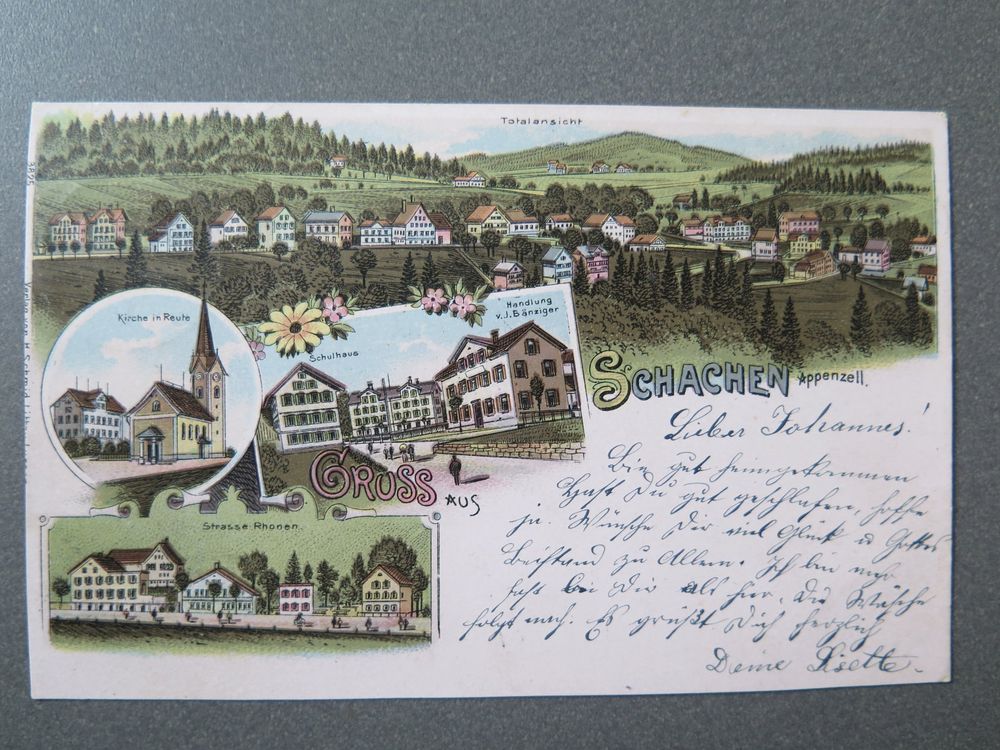 Totalansicht
3825
Kirche in Reute
Schulhaus
Handlung
v. J. Bänziger
SCHACHEN Appenzell.
GRUSS AUS
Strasse Rhonen.
Lieber Johannes!
Bin gut heimgekommen
Hast Du gut geschlafen, hoffe
ja. Wünsche Dir viel Glück u Gottes
Beistand zu Allem. Ich bin mehr
fast bei Dir als hier, die Wäsche
folgt nach. Es grüßt Dich herzlich
Deine Lisette.